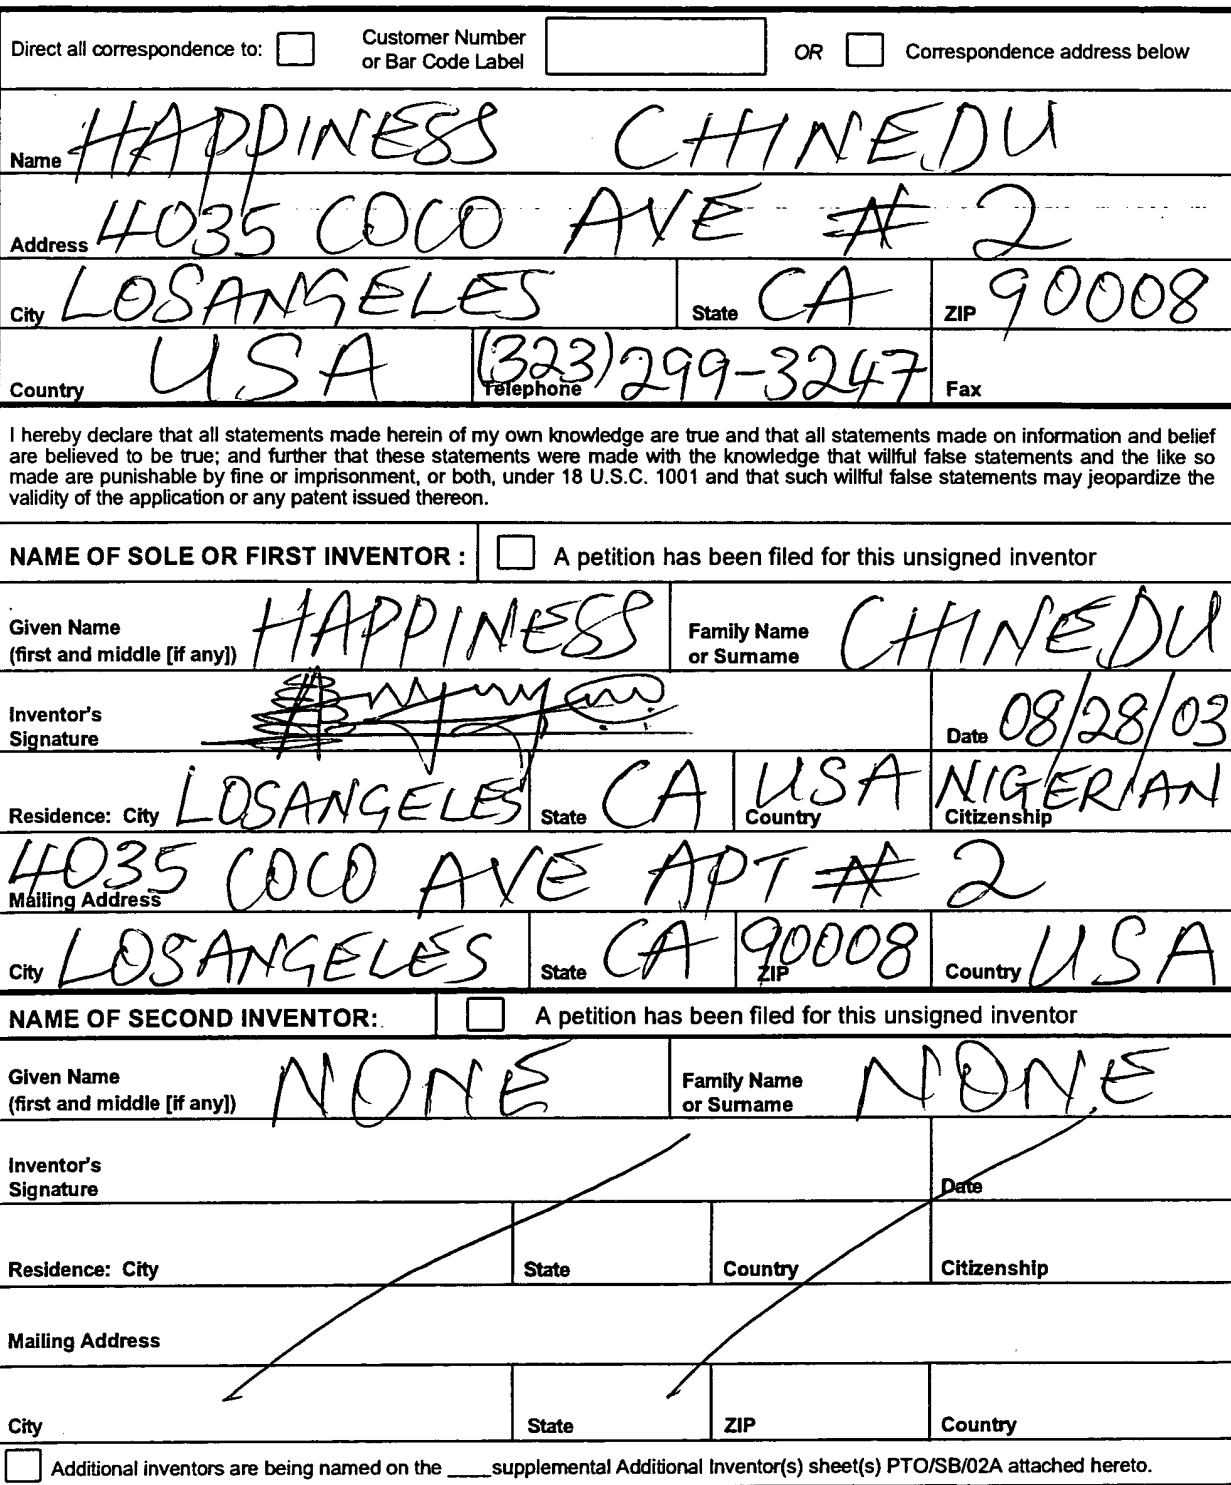 Direct all correspondence to: Customer Number or Bar Code Label OR Correspondence address below
Name HAPPINESS CHINEDU
Address 4035 COCO AVE # 2
City LOSANGELES State CA ZIP 90008
Country USA Telephone (323)299-3247 Fax
I hereby declare that all statements made herein of my own knowledge are true and that all statements made on information and belief
are believed to be true; and further that these statements were made with the knowledge that willful false statements and the like so
made are punishable by fine or imprisonment, or both, under 18 U.S.C. 1001 and that such willful false statements may jeopardize the
validity of the application or any patent issued thereon.
NAME OF SOLE OR FIRST INVENTOR : A petition has been filed for this unsigned inventor
Given Name (first and middle [if any]) HAPPINESS Family Name or Surname CHINEDU
Inventor's Signature Date 08/28/03
Residence: City LOSANGELES State CA Country USA Citizenship NIGERIAN
Mailing Address 4035 COCO AVE APT # 2
City LOSANGELES State CA ZIP 90008 Country USA
NAME OF SECOND INVENTOR: A petition has been filed for this unsigned inventor
Given Name (first and middle [if any]) NONE Family Name or Surname NONE
Inventor's Signature Date
Residence: City State Country Citizenship
Mailing Address
City State ZIP Country
Additional inventors are being named on the ____supplemental Additional Inventor(s) sheet(s) PTO/SB/02A attached hereto.